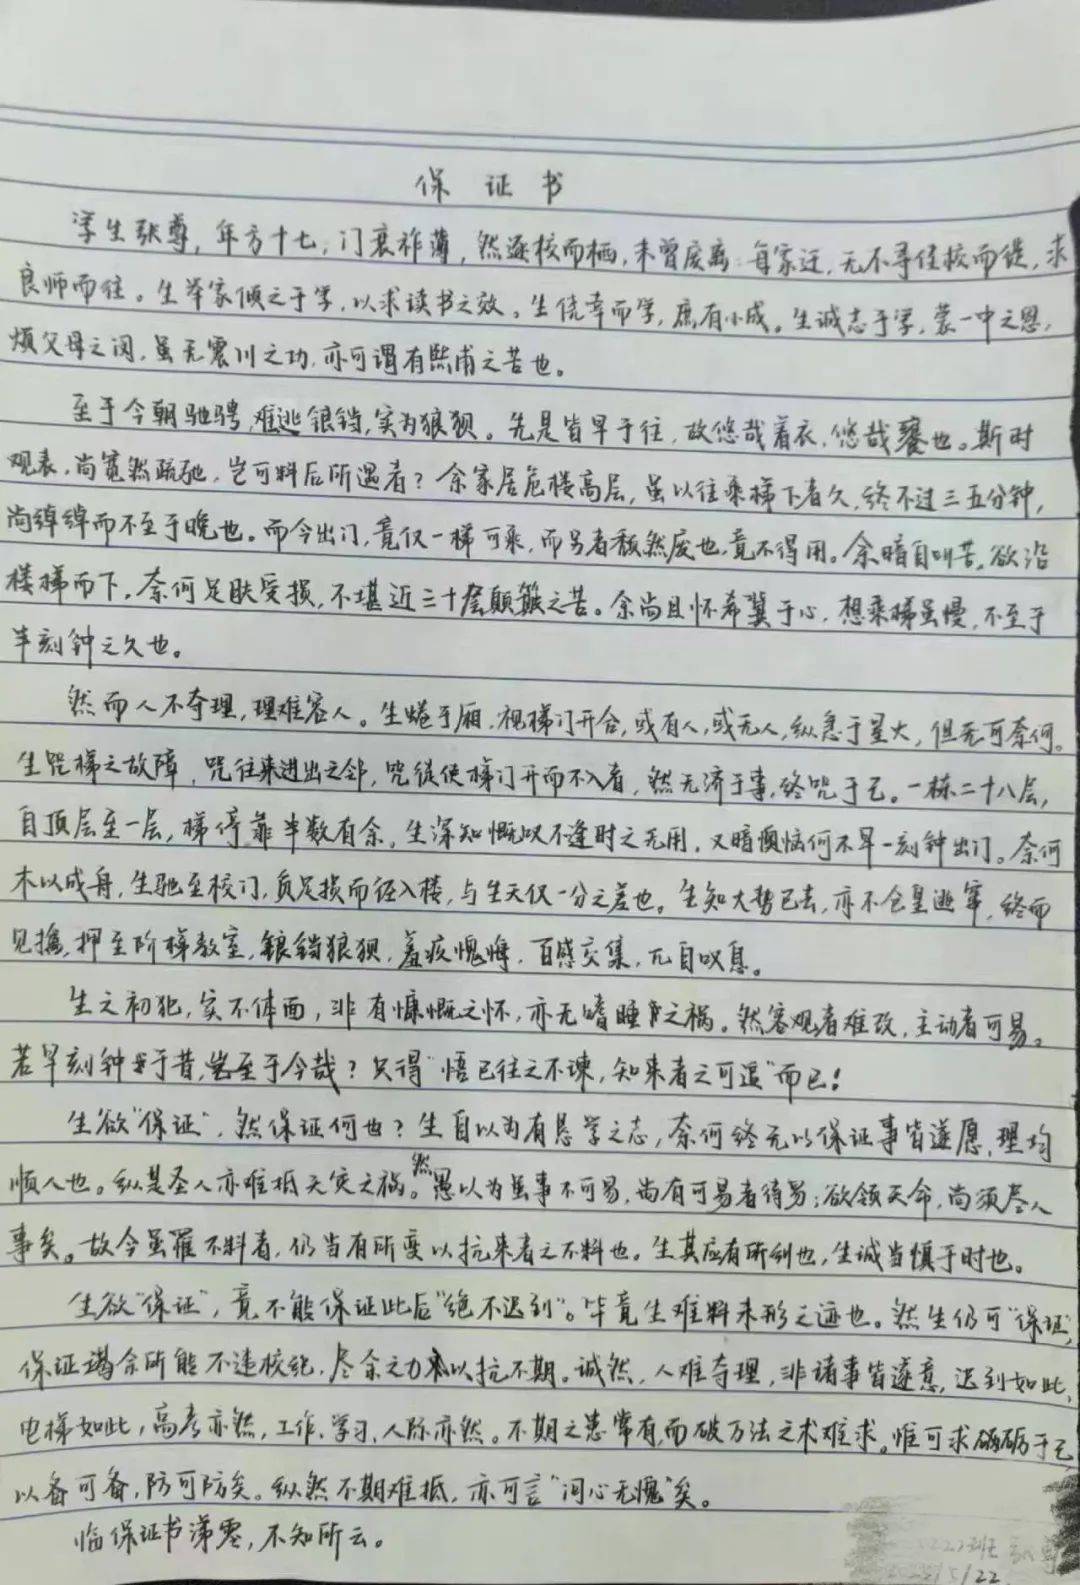 保 证 书
学生张尊，年方十七，门衰祚薄，然逐校而栖，未曾废离 每家迁，无不寻佳校而徙，求
良师而往。生举家倾之于学，以求读书之效。生侥幸而学，庶有小成。生诚志于学，蒙一中之恩，
烦父母之闵，虽无震川之功，亦可谓有熙甫之苦也。
至于今朝驰骋，难逃锒铛，实为狼狈。先是皆早于往，故悠哉着衣，悠哉饔也。斯时
观表，尚宽然疏弛，岂可料后所遇者？余家居危楼高层，虽以往乘梯下者久，终不过三五分钟，
尚绰绰而不至于晚也。而今出门，竟仅一梯可乘，而另者颓然废也，竟不得用。余暗自叫苦，欲沿
楼梯而下，奈何足肤受损，不堪近三十层颠簸之苦。余尚且怀希冀于心，想乘梯虽慢，不至于
半刻钟之久也。
然而人不夺理，理难容人。生蜷于厢，视梯门开合，或有人，或无人，纵急于星火，但无可奈何。
生咒梯之故障，咒往来进出之邻，咒徒使梯门开而不入者，然无济于事，终咒于己。一栋二十八层，
自顶层至一层，梯停靠半数有余，生深知慨叹不逢时之无用，又暗懊恼何不早一刻钟出门。奈何
木以成舟，生驰至校门，负足损而径入楼，与生天仅一分之差也。生知大势已去，亦不仓皇逃窜，终而
见擒，押至阶梯教室，锒铛狼狈，羞疚愧悔，百感交集，兀自叹息。
生之初犯，实不体面，非有慷慨之怀，亦无嗜睡之祸。然客观者难改，主动者可易。
若早刻钟于昔，岂至于今哉？只得“悟已往之不谏，知来者之可追”而已！
生欲“保证”，然保证何也？生自以为有恳学之志，奈何终无以保证事皆遂愿，理均
顺人也。纵是圣人亦难抵天灾之祸。然愚以为虽事不可易，尚有可易者待易；欲领天命，尚须尽人
事矣。故今虽罹不料者，仍当有所变以抗来者之不料也。生其应有所创也，生诚当慎于时也。
生欲“保证”，竟不能保证此后“绝不迟到”。毕竟生难料未形之迹也。然生仍可“保证”，
保证竭余所能不违校纪，尽余之力以抗不期。诚然，人难夺理，非诸事皆遂意，迟到如此，
电梯如此，高考亦然，工作、学习、人际亦然。不期之患常有，而破万法之术难求。惟可求砥砺于己，
以备可备，防可防矣。纵然不期难抵，亦可言“问心无愧”矣。
临保证书涕零，不知所云。
班 张尊
5/22